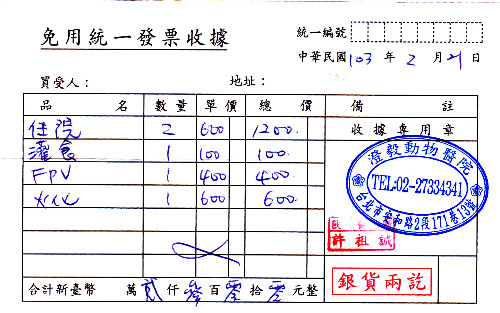 免用統一發票收據
統一編號
中華民國 103 年 2 月 21 日
買受人： 地址：
品名 數量 單價 總價 備註
住院 2 600 1200. 收據專用章
灌食 1 100 100.
FPV 1 400 400.
1 600 600.
澄毅動物醫院
TEL:02-27334341
台北市安和路2段171巷13號
許祖誠
合計新臺幣 萬 貳 仟 參 百 零 拾 零 元整
銀貨兩訖